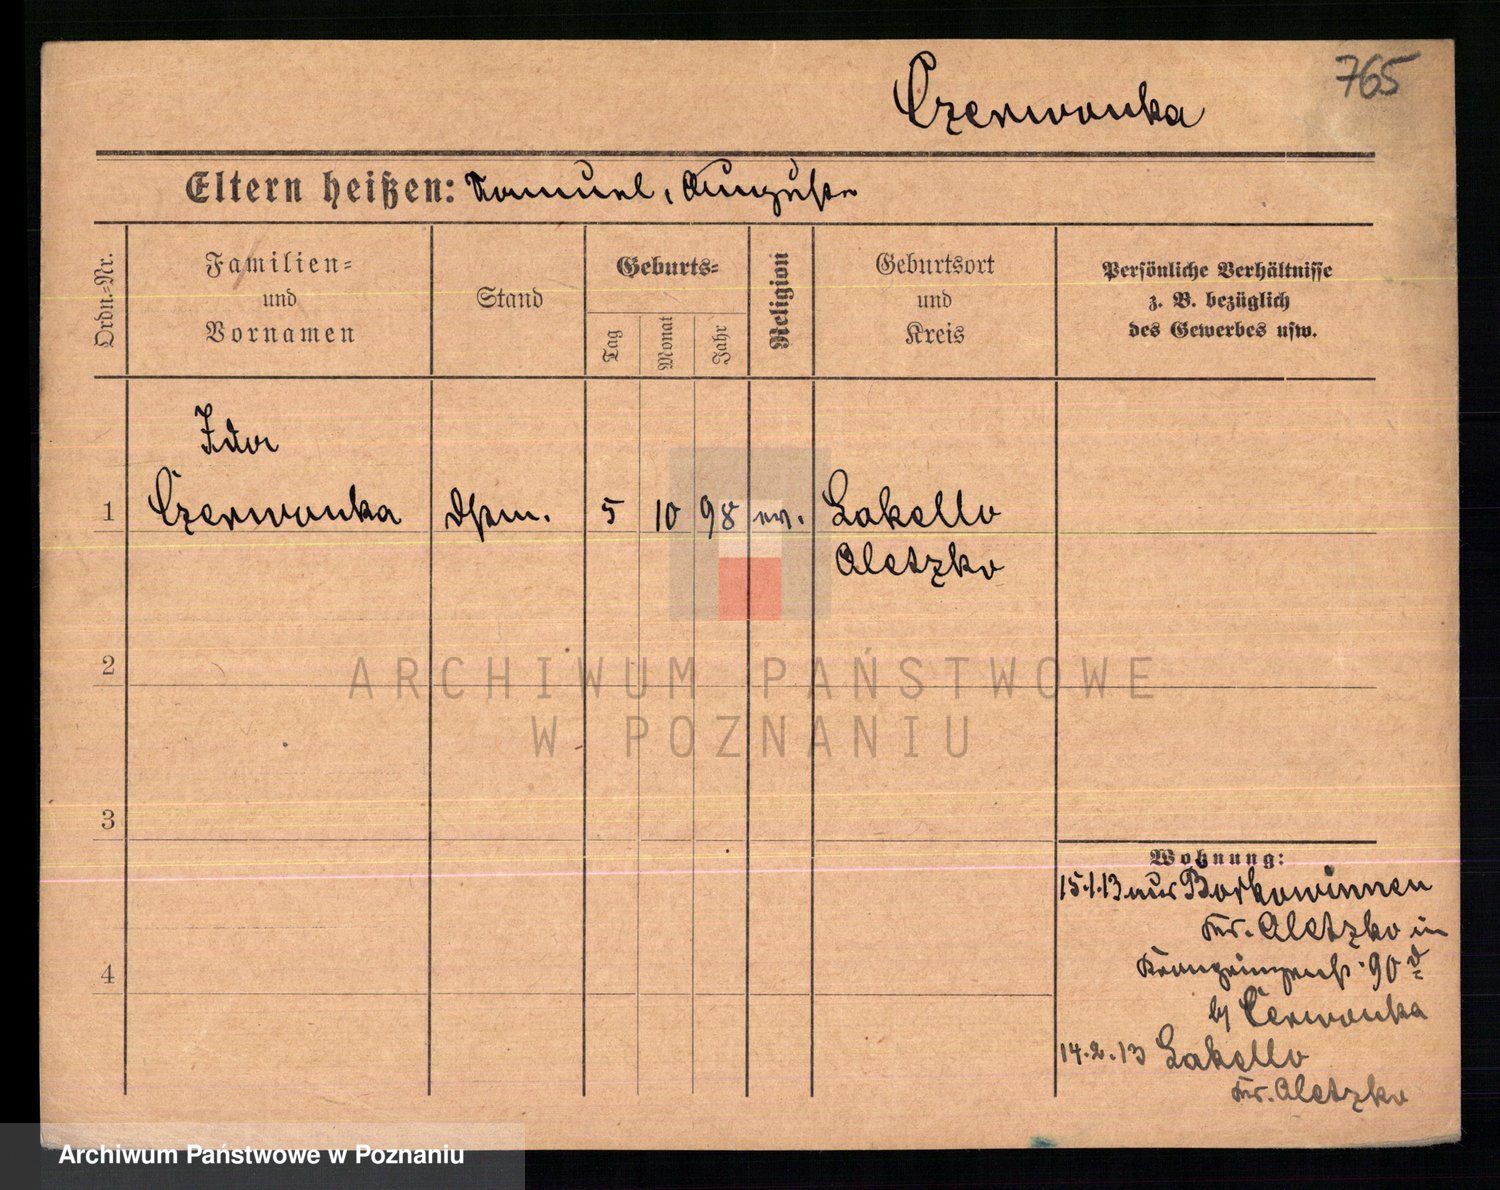 765
Czerwonka
Eltern heißen: Samuel, Auguste
Ordn.-Nr.
Familien-
und
Vornamen
Stand
Geburts-
Tag
Monat
Jahr
Religion
Geburtsort
und
Kreis
Persönliche Verhältnisse
z. B. bezüglich
des Gewerbes usw.
Ida
1 Czerwonka 5 10 98 ev. Lakello
Oletzko
2
3
4
Wohnung:
15.1.13 aus Borkowinnen
Kr. Oletzko in
90
Czerwonka
14.2.13 Lakello
Kr. Oletzko
ARCHIWUM PAŃSTWOWE
W POZNANIU
Archiwum Państwowe w Poznaniu